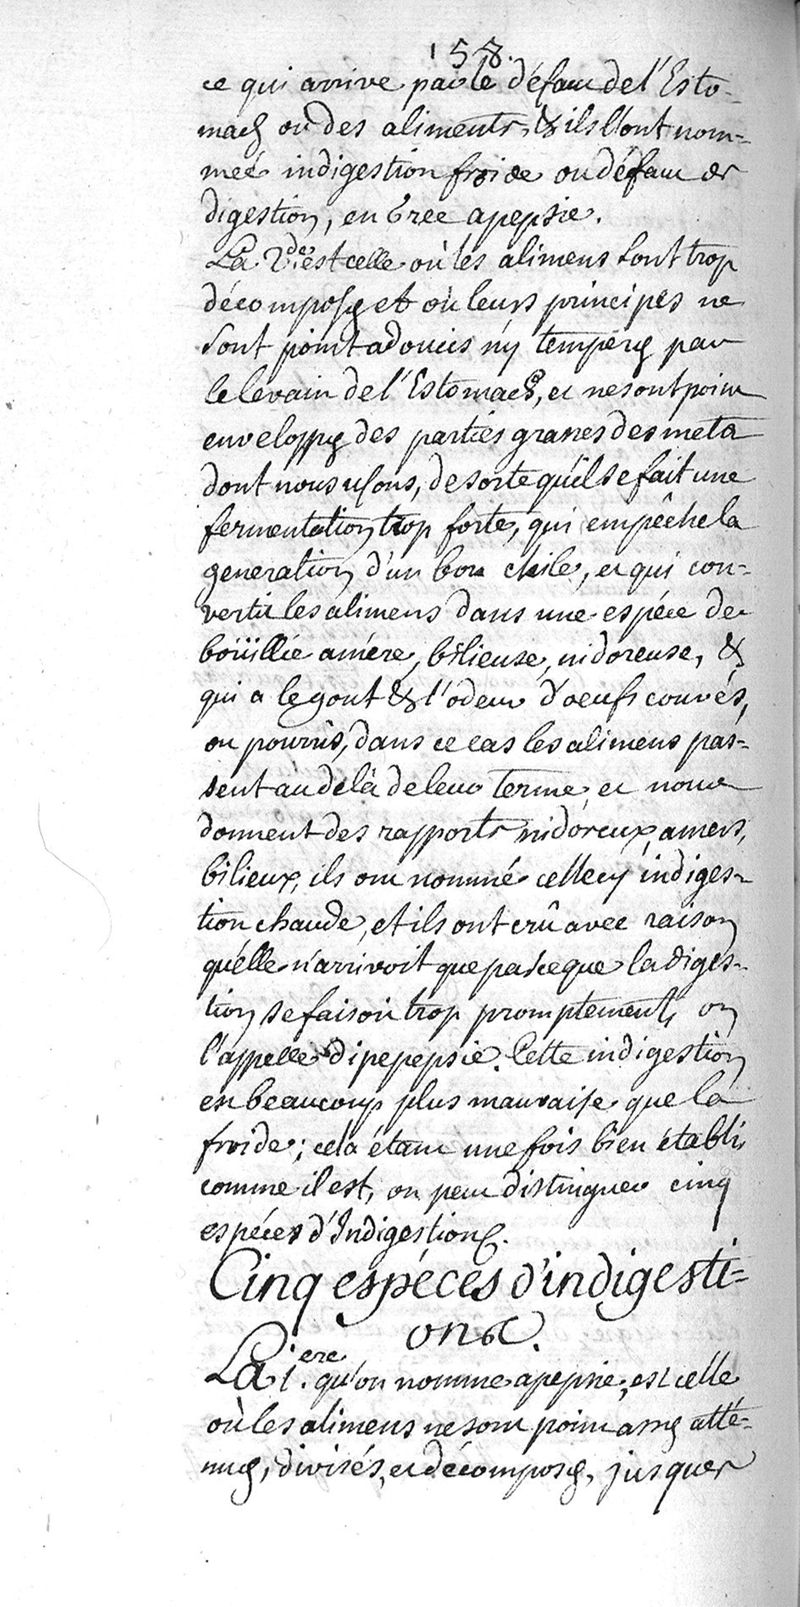 158.
ce qui arrive par le défaut de l'Esto-
mach ou des aliments, & ils l'ont nom-
mée indigestion froide ou défaut de
digestion, en Grec apepsie.
La 2.de est celle où les alimens sont trop
décomposés et où leurs principes ne
sont point adoucis ny temperés par
le levain de l'Estomach, et ne sont point
enveloppés des parties grasses des mets
dont nous usons, de sorte qu'il se fait une
fermentation trop forte, qui empêche la
generation d'un bon chile, et qui con-
vertit les alimens dans une espéce de
boüillie amére, bilieuse, nidoreuse, &
qui a le gout & l'odeur d'oeufs couvés,
ou pourris, dans ce cas les alimens pas-
sent au delà de leur terme et nous
donnent des rapports nidoreux, amers,
bilieux, ils ont nommé celle cy indiges-
tion chaude, et ils ont crû avec raison
qu'elle n'arrivoit que parceque la diges-
tion se faisoit trop promptement, on
l'appelle dipepepsie. Cette indigestion
est beaucoup plus mauvaise que la
froide; cela étant une fois bien établi,
comme il est, on peut distinguer cinq
espéces d'Indigestions.
Cinq espéces d'indigesti-
ons.
La 1.ere qu'on nomme apepsie, est celle
où les alimens ne sont point assés atté-
nués, divisés, et décomposés, jusques